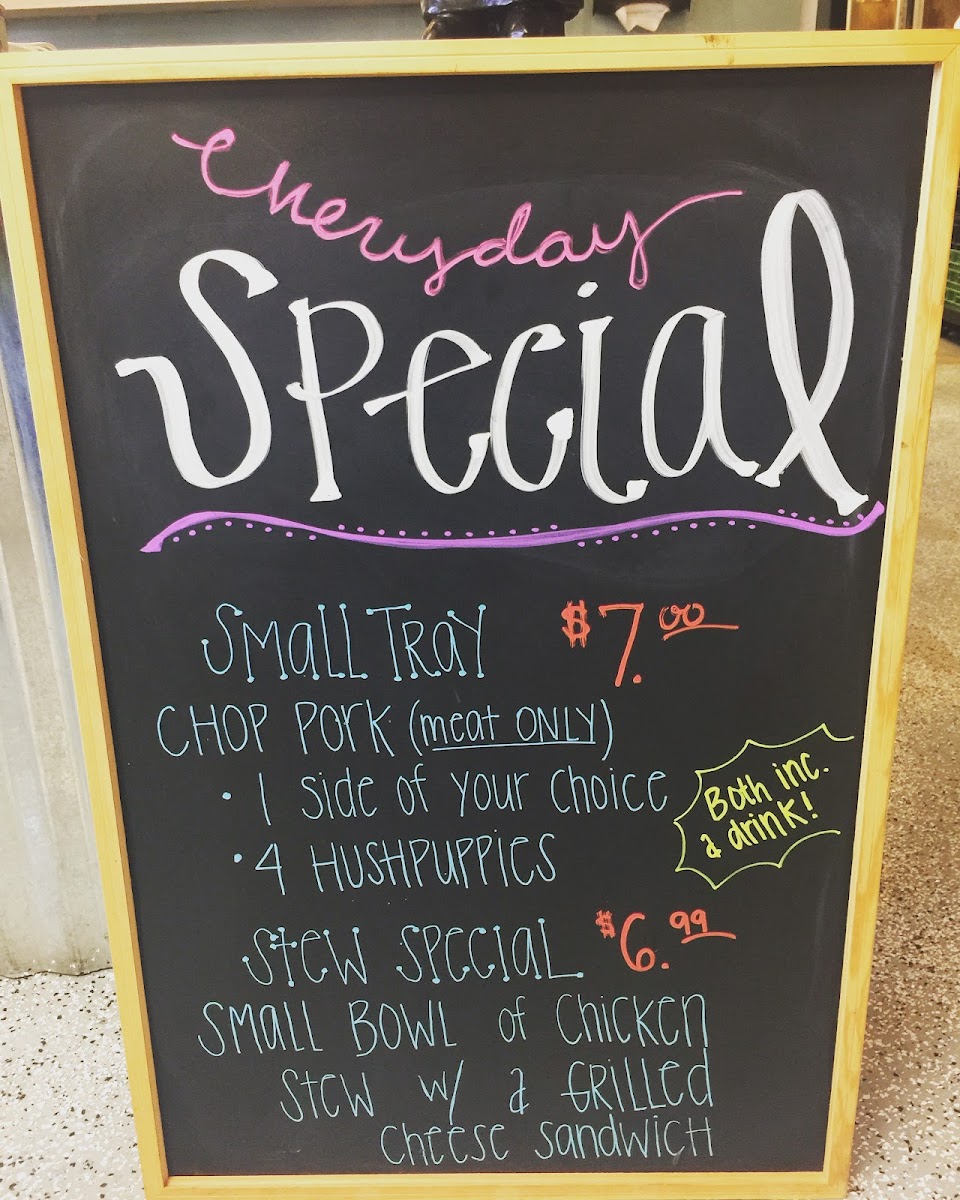 Everyday
Special
Small Tray $7.00
CHOP PORK (meat ONLY)
• 1 side of your choice
• 4 HUSHPUPPIES
Both inc.
a drink!
Stew Special $6.99
Small BOWL of Chicken
Stew w/ a GRILLED
cheese sandwich